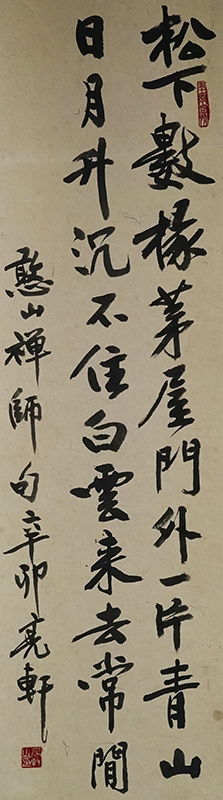 松下數椽茅屋門外一片青山
日月升沉不住白雲来去常閒
憨山禅師句辛卯亮軒